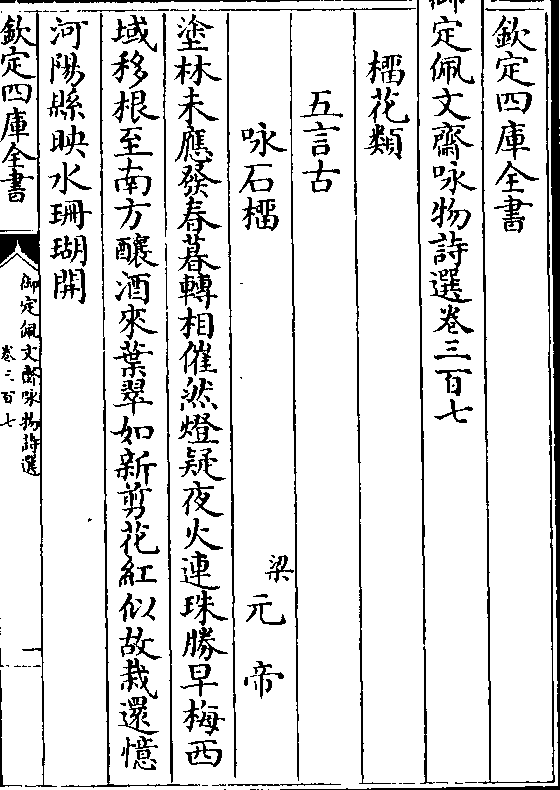 欽定四庫全書
御定佩文齋咏物詩選卷三百七
橊花類
五言古
咏石橊
梁元帝
塗林未應發春暮轉相催然燈疑夜火連珠勝早梅西
域移根至南方釀酒來葉翠如新剪花紅似故栽還憶
河陽縣映水珊瑚開
欽定四庫全書
御定佩文齋咏物詩選
卷三百七
一